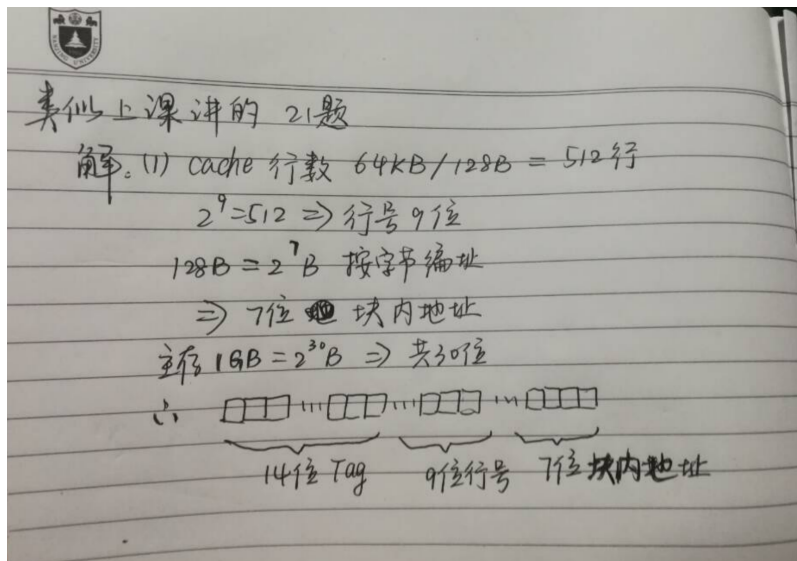 类似上课讲的 21题
解: (1) cache 行数 64KB/128B = 512行
2⁹=512 ⇒ 行号9位
128B = 2⁷B 按字节编址
⇒ 7位 块内地址
主存 1GB = 2³⁰B ⇒ 共30位
∴ ... ... ...
14位 Tag 9位行号 7位块内地址